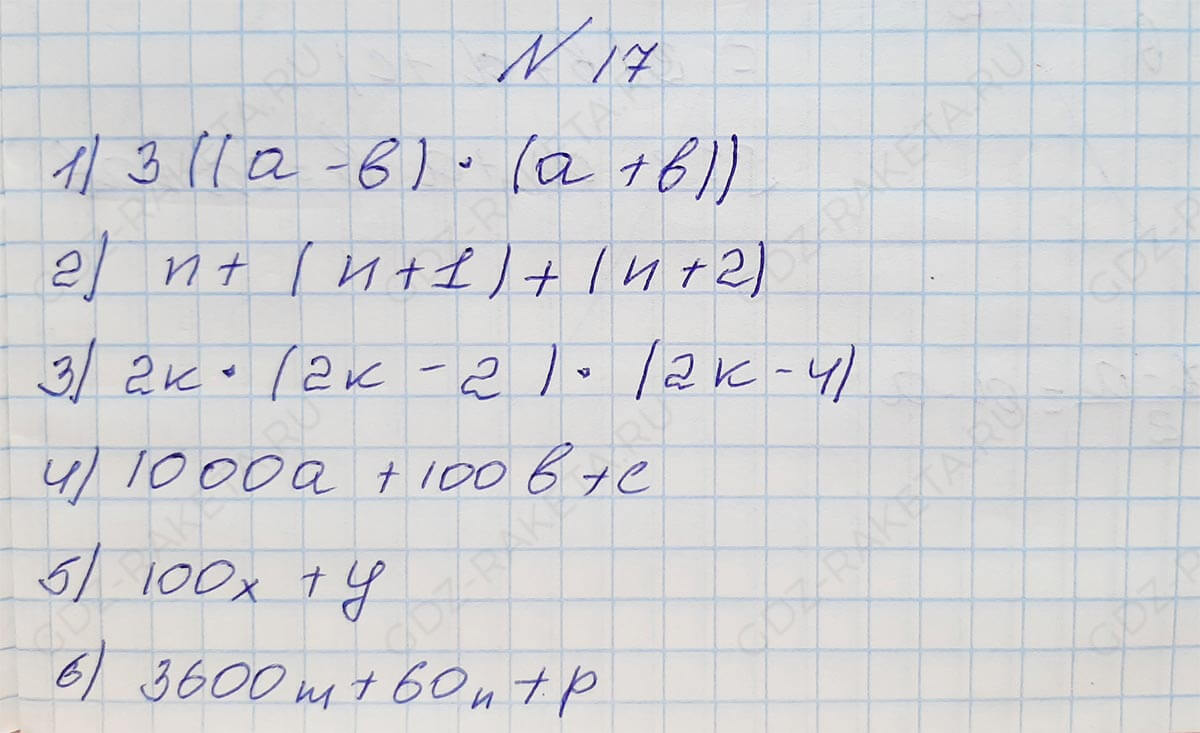 N 17
1) 3((a - в) · (a + в))
2) n + (n + 1) + (n + 2)
3) 2к · (2к - 2) · (2к - 4)
4) 1000a + 100в + c
5) 100x + y
6) 3600m + 60n + p
GDZ-RAKETA.RU